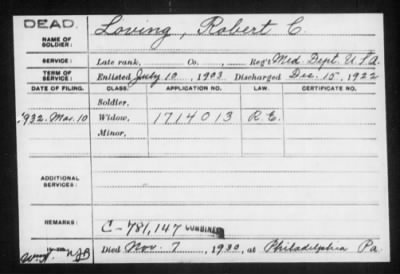 DEAD.
NAME OF SOLDIER: Loving, Robert C.
SERVICE: Late rank, Co. Reg't Med. Dept. U.S.A.
TERM OF SERVICE: Enlisted July 10, 1903. Discharged Dec. 15, 1922
DATE OF FILING. CLASS. APPLICATION NO. LAW. CERTIFICATE NO.
Soldier,
1932. Mar. 10 Widow, 1714013 R.E.
Minor,
ADDITIONAL SERVICES:
REMARKS: C-781,147 COMBINED
Died Nov. 7, 1930, at Philadelphia Pa.